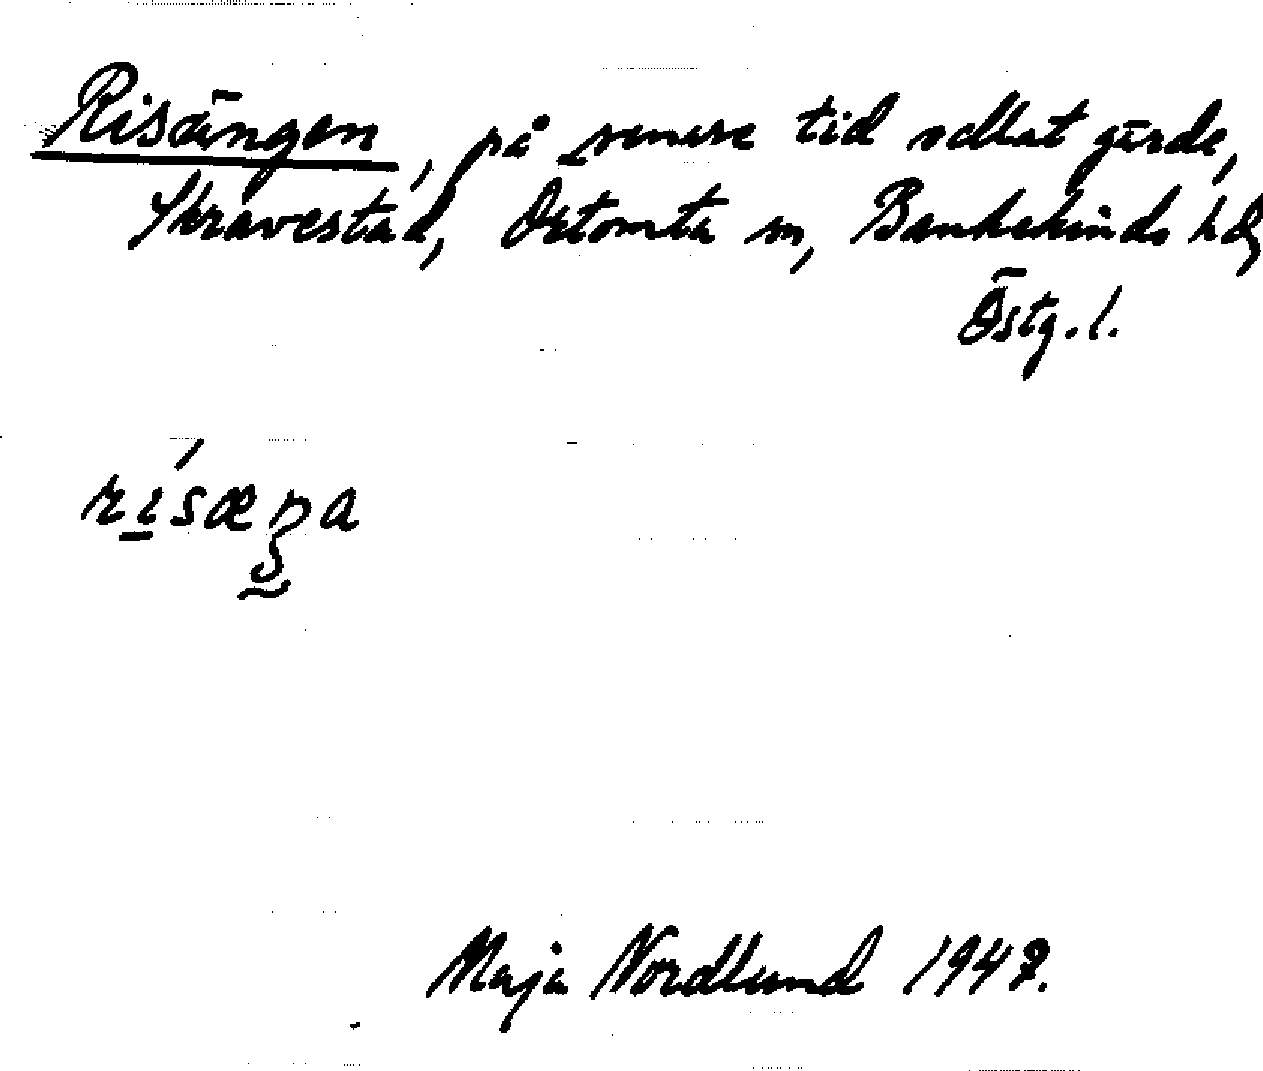 Risängen, på senare tid odlat gärde,
Skravestad, Östomta sn, Bankekinds hd,
Östg. l.
risæŋa
Maja Nordlund 1947.